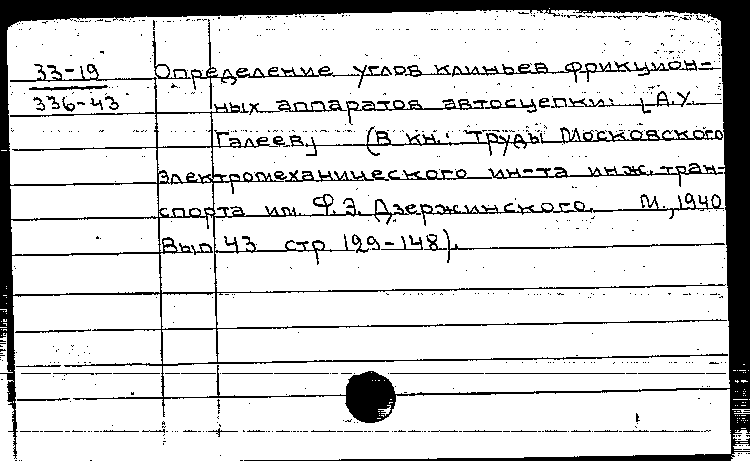 33-19 Определение углов клиньев фрикцион-
336-43 ных аппаратов автосцепки. [А.У.
Галеев.] (В кн.: Труды Московского
электромеханического ин-та инж. тран-
спорта им. Ф.Э. Дзержинского. М., 1940
Вып. 43 стр. 129-148).